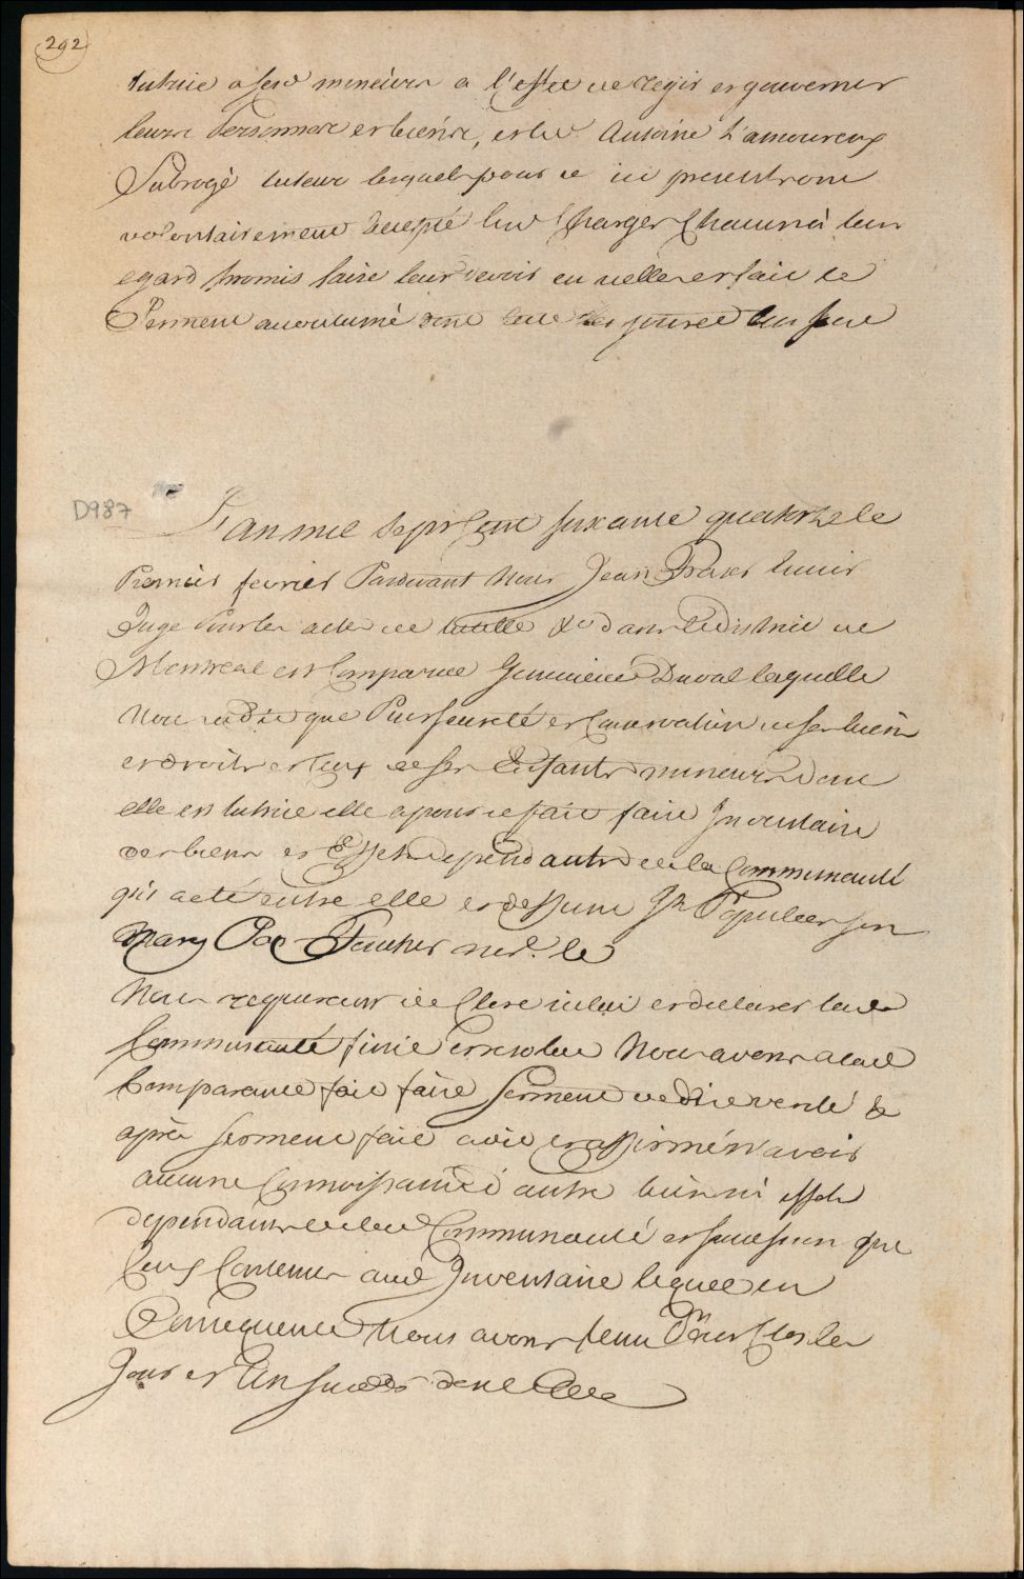 292
tutrice a sesd mineurs a l'effet de regir et gouverner
leurs Personnes et biens, et led Antoine L'amoureux
Subrogé tuteur lesquels pour ce ici presents ont
volontairement accepté lesd Charges Chacun à leur
egard promis faire leur devoir en icelles et fait le
Serment accoutumé dont acte
D987
L'an mil Sept Cent Soixante quatorze le
Premier fevrier Pardevant Nous Jean Fraser Ecuier
Juge Pour les actes de tutelle &c dans le district de
Montreal est Comparue Genevieve Duval laquelle
Nous a dit que Pour seureté et Conservation de ses biens
et droits et ceux de ses Enfants mineurs dont
elle est tutrice elle a pour ce fait faire Inventaire
des biens et Effets dependants de la Communauté
qui a eté entre elle et deffunt Jh son
mary Par Foucher notre. le
Nous requerant de Clore icelui et declarer lade
Communauté finie et resolue Nous avons a lad
Comparante fait faire Serment de dire verité &
après serment fait a dit et affirmé n'avoir
aucune Connoissance d'autre biens ni effets
dependants de lad Communauté et succession que
Ceux Contenus aud Inventaire lequel en
Consequence Nous avons tenu Pour Clos les
Jour et an susdits dont acte